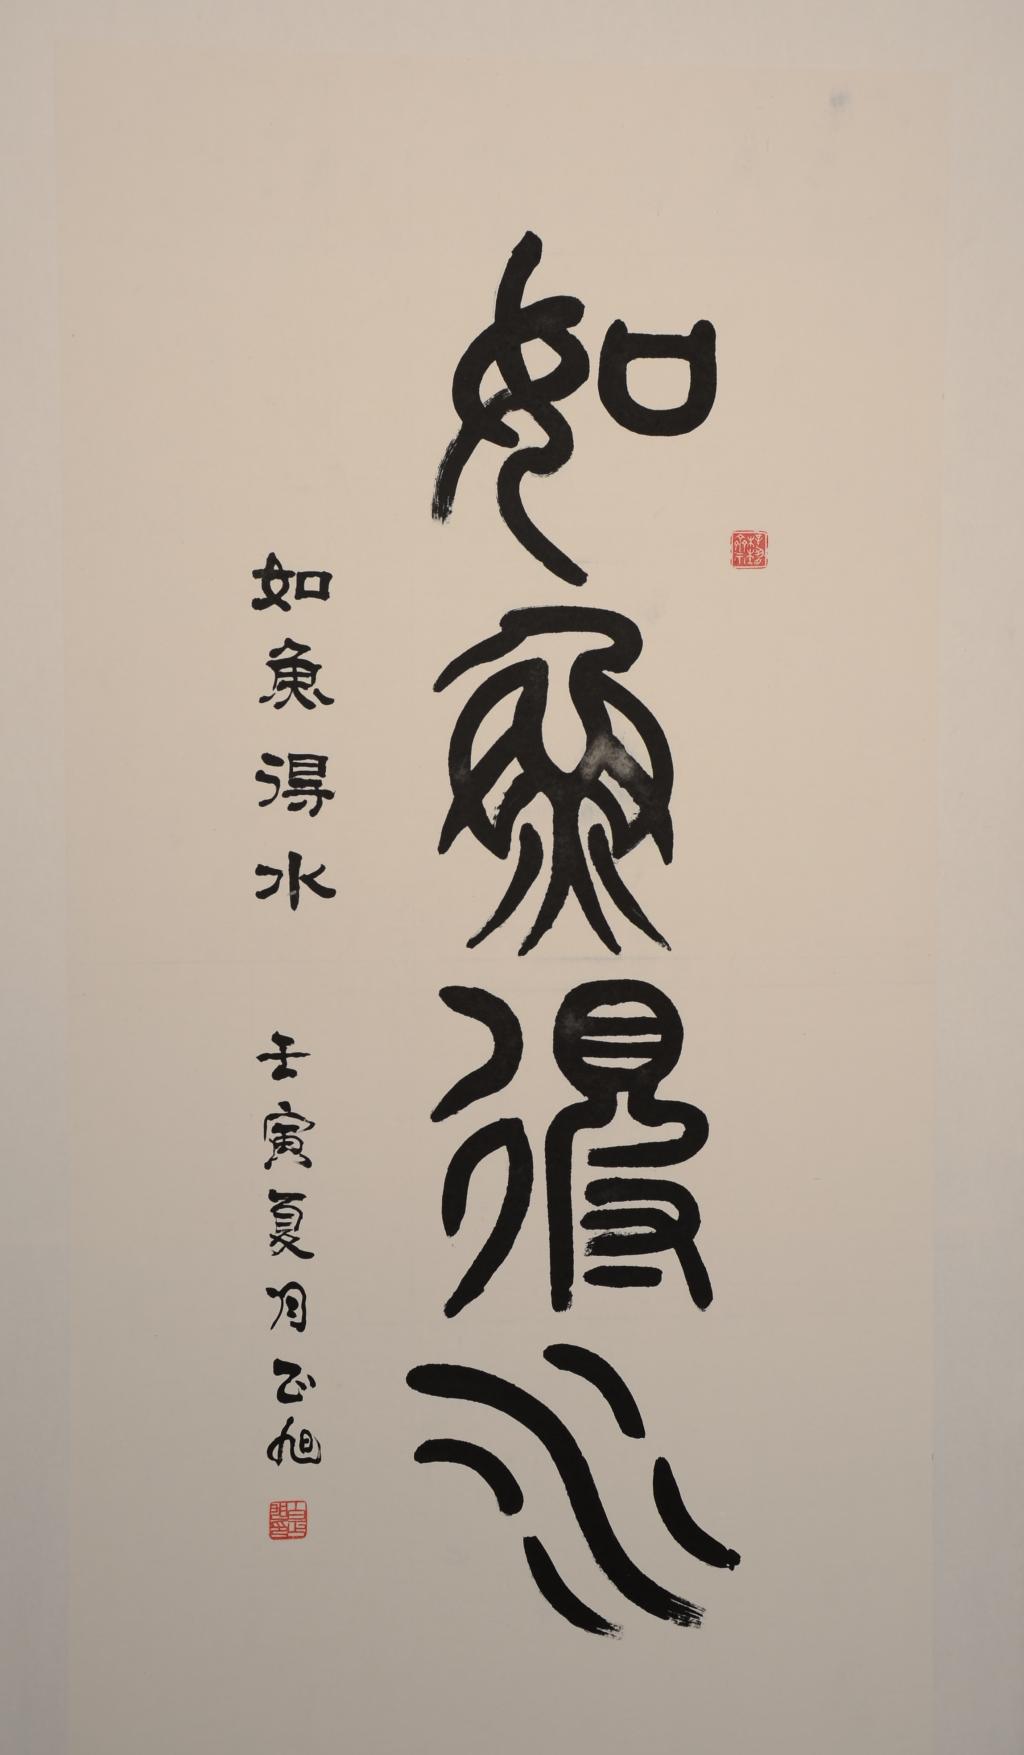 如魚得水
如魚得水
壬寅夏月正旭